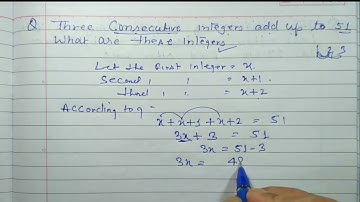 Q Three Consecutive integers add up to 51
What are these integers.
1, 2, 3
Let the first integer = x.
Second , , = x+1.
Third , , = x+2
According to q -
x + x+1 + x+2 = 51
3x + 3 = 51
3x = 51-3
3x = 48